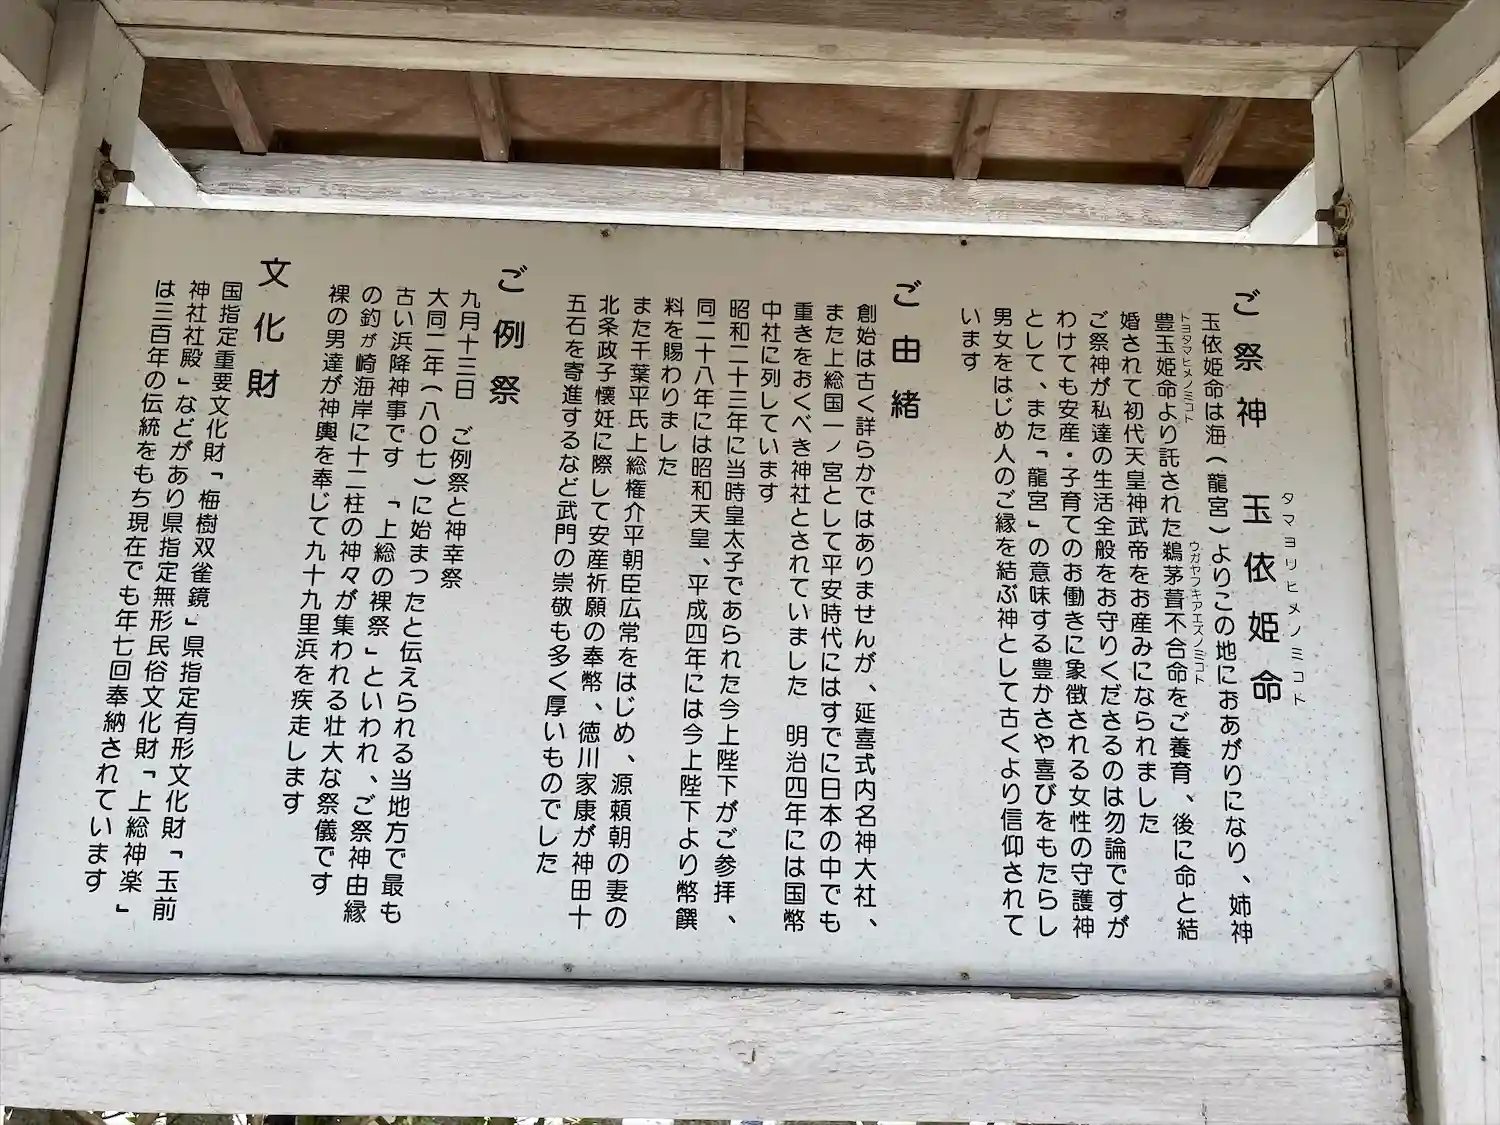 ご祭神　玉依姫命
タマヨリヒメノミコト
玉依姫命は海（龍宮）よりこの地におあがりになり、姉神
豊玉姫命より託された鵜茅葺不合命をご養育、後に命と結
トヨタマヒメノミコト
ウガヤフキアエズノミコト
婚されて初代天皇神武帝をお産みになられました
ご祭神が私達の生活全般をお守りくださるのは勿論ですが
わけても安産・子育てのお働きに象徴される女性の守護神
として、また「龍宮」の意味する豊かさや喜びをもたらし
男女をはじめ人のご縁を結ぶ神として古くより信仰されて
います
ご由緒
創始は古く詳らかではありませんが、延喜式内名神大社、
また上総国一ノ宮として平安時代にはすでに日本の中でも
重きをおくべき神社とされていました　明治四年には国幣
中社に列しています
昭和二十三年に当時皇太子であられた今上陛下がご参拝、
同二十八年には昭和天皇、平成四年には今上陛下より幣饌
料を賜わりました
また千葉平氏上総権介平朝臣広常をはじめ、源頼朝の妻の
北条政子懐妊に際して安産祈願の奉幣、徳川家康が神田十
五石を寄進するなど武門の崇敬も多く厚いものでした
ご例祭
九月十三日　ご例祭と神幸祭
大同二年（八〇七）に始まったと伝えられる当地方で最も
古い浜降神事です　「上総の裸祭」といわれ、ご祭神由縁
の釣ガ崎海岸に十二柱の神々が集われる壮大な祭儀です
裸の男達が神輿を奉じて九十九里浜を疾走します
文化財
国指定重要文化財「梅樹双雀鏡」県指定有形文化財「玉前
神社社殿」などがあり県指定無形民俗文化財「上総神楽」
は三百年の伝統をもち現在でも年七回奉納されています